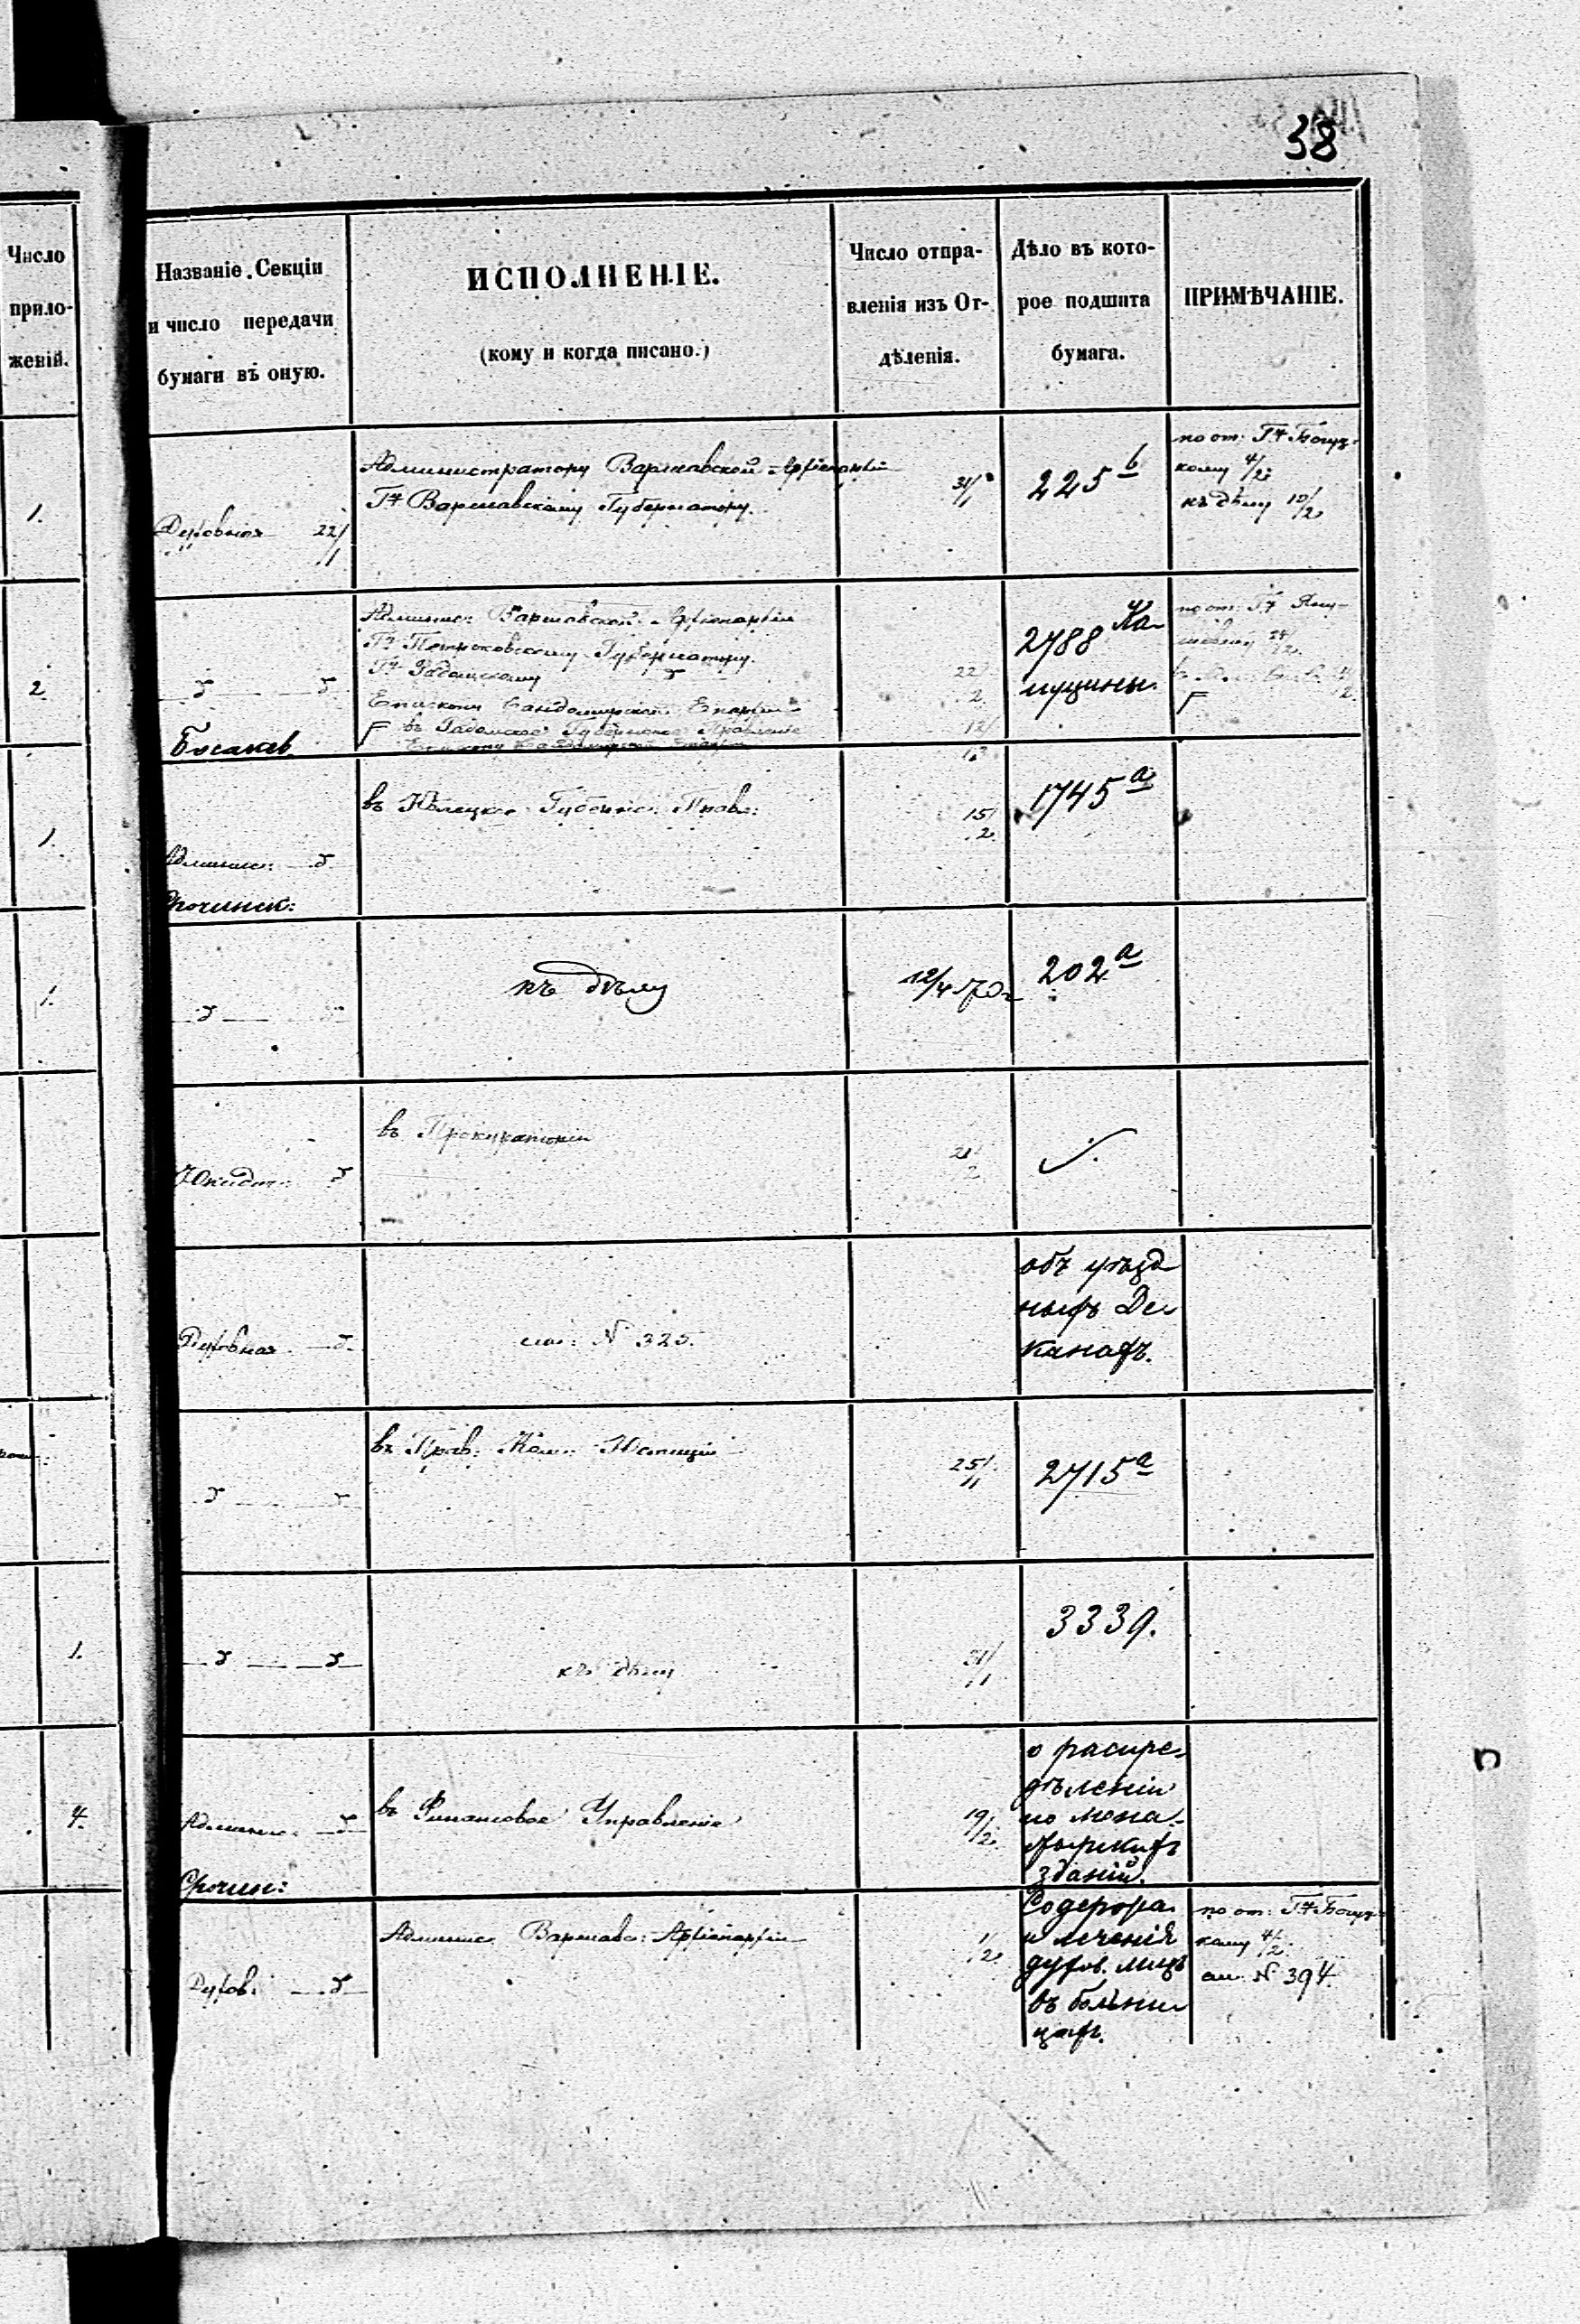 38
Число
прило-
женій.
Названіе Секціи
и число передачи
бумаги въ оную.
ИСПОЛНЕНІЕ.
(кому и когда писано.)
Число отпра-
вленія изъ От-
дѣленія.
Дѣло въ кото-
рое подшита
бумага.
ПРИМѢЧАНІЕ.
1.
Духовная 22/1
Администратору Варшавской Архіепархіи
Гну Варшавскому Губернатору.
31/1
225 b
по от: Гну
кому 4/2
къ дѣлу 10/2
2
Админис: Варшавской Архіепархіи
Гну Петроковскому Губернатору.
Гну Радомскому
Епископу Сандомирской Епархіи
въ Радомское Губернское Правленіе
Епископу Сандомирской Епархіи
22/2
12/
2788
по от: Гну
1.
Админис:
въ Кѣлецкое Губернс: Правл:
15/2
1745 a
1.
къ дѣлу
12/4 70 г
202 a
Юридич:
въ Прокураторію
21/2
Духовная
см: N 325.
объ уѣзд
ныхъ Де-
канахъ.
въ Прав: Ком: Юстиціи
25/11
2715 a
1.
къ дѣлу
31/1
3339.
4.
Админис:
въ Финансовое Управленіе
19/2
о распре-
дѣленіи
по мона-
стырскихъ
зданій.
Духов:
Админис Варшавс: Архіепархіи
1/2
и леченія
духов. лицъ
въ больни
цахъ.
по от: Гну
кому 4/2
N 394.